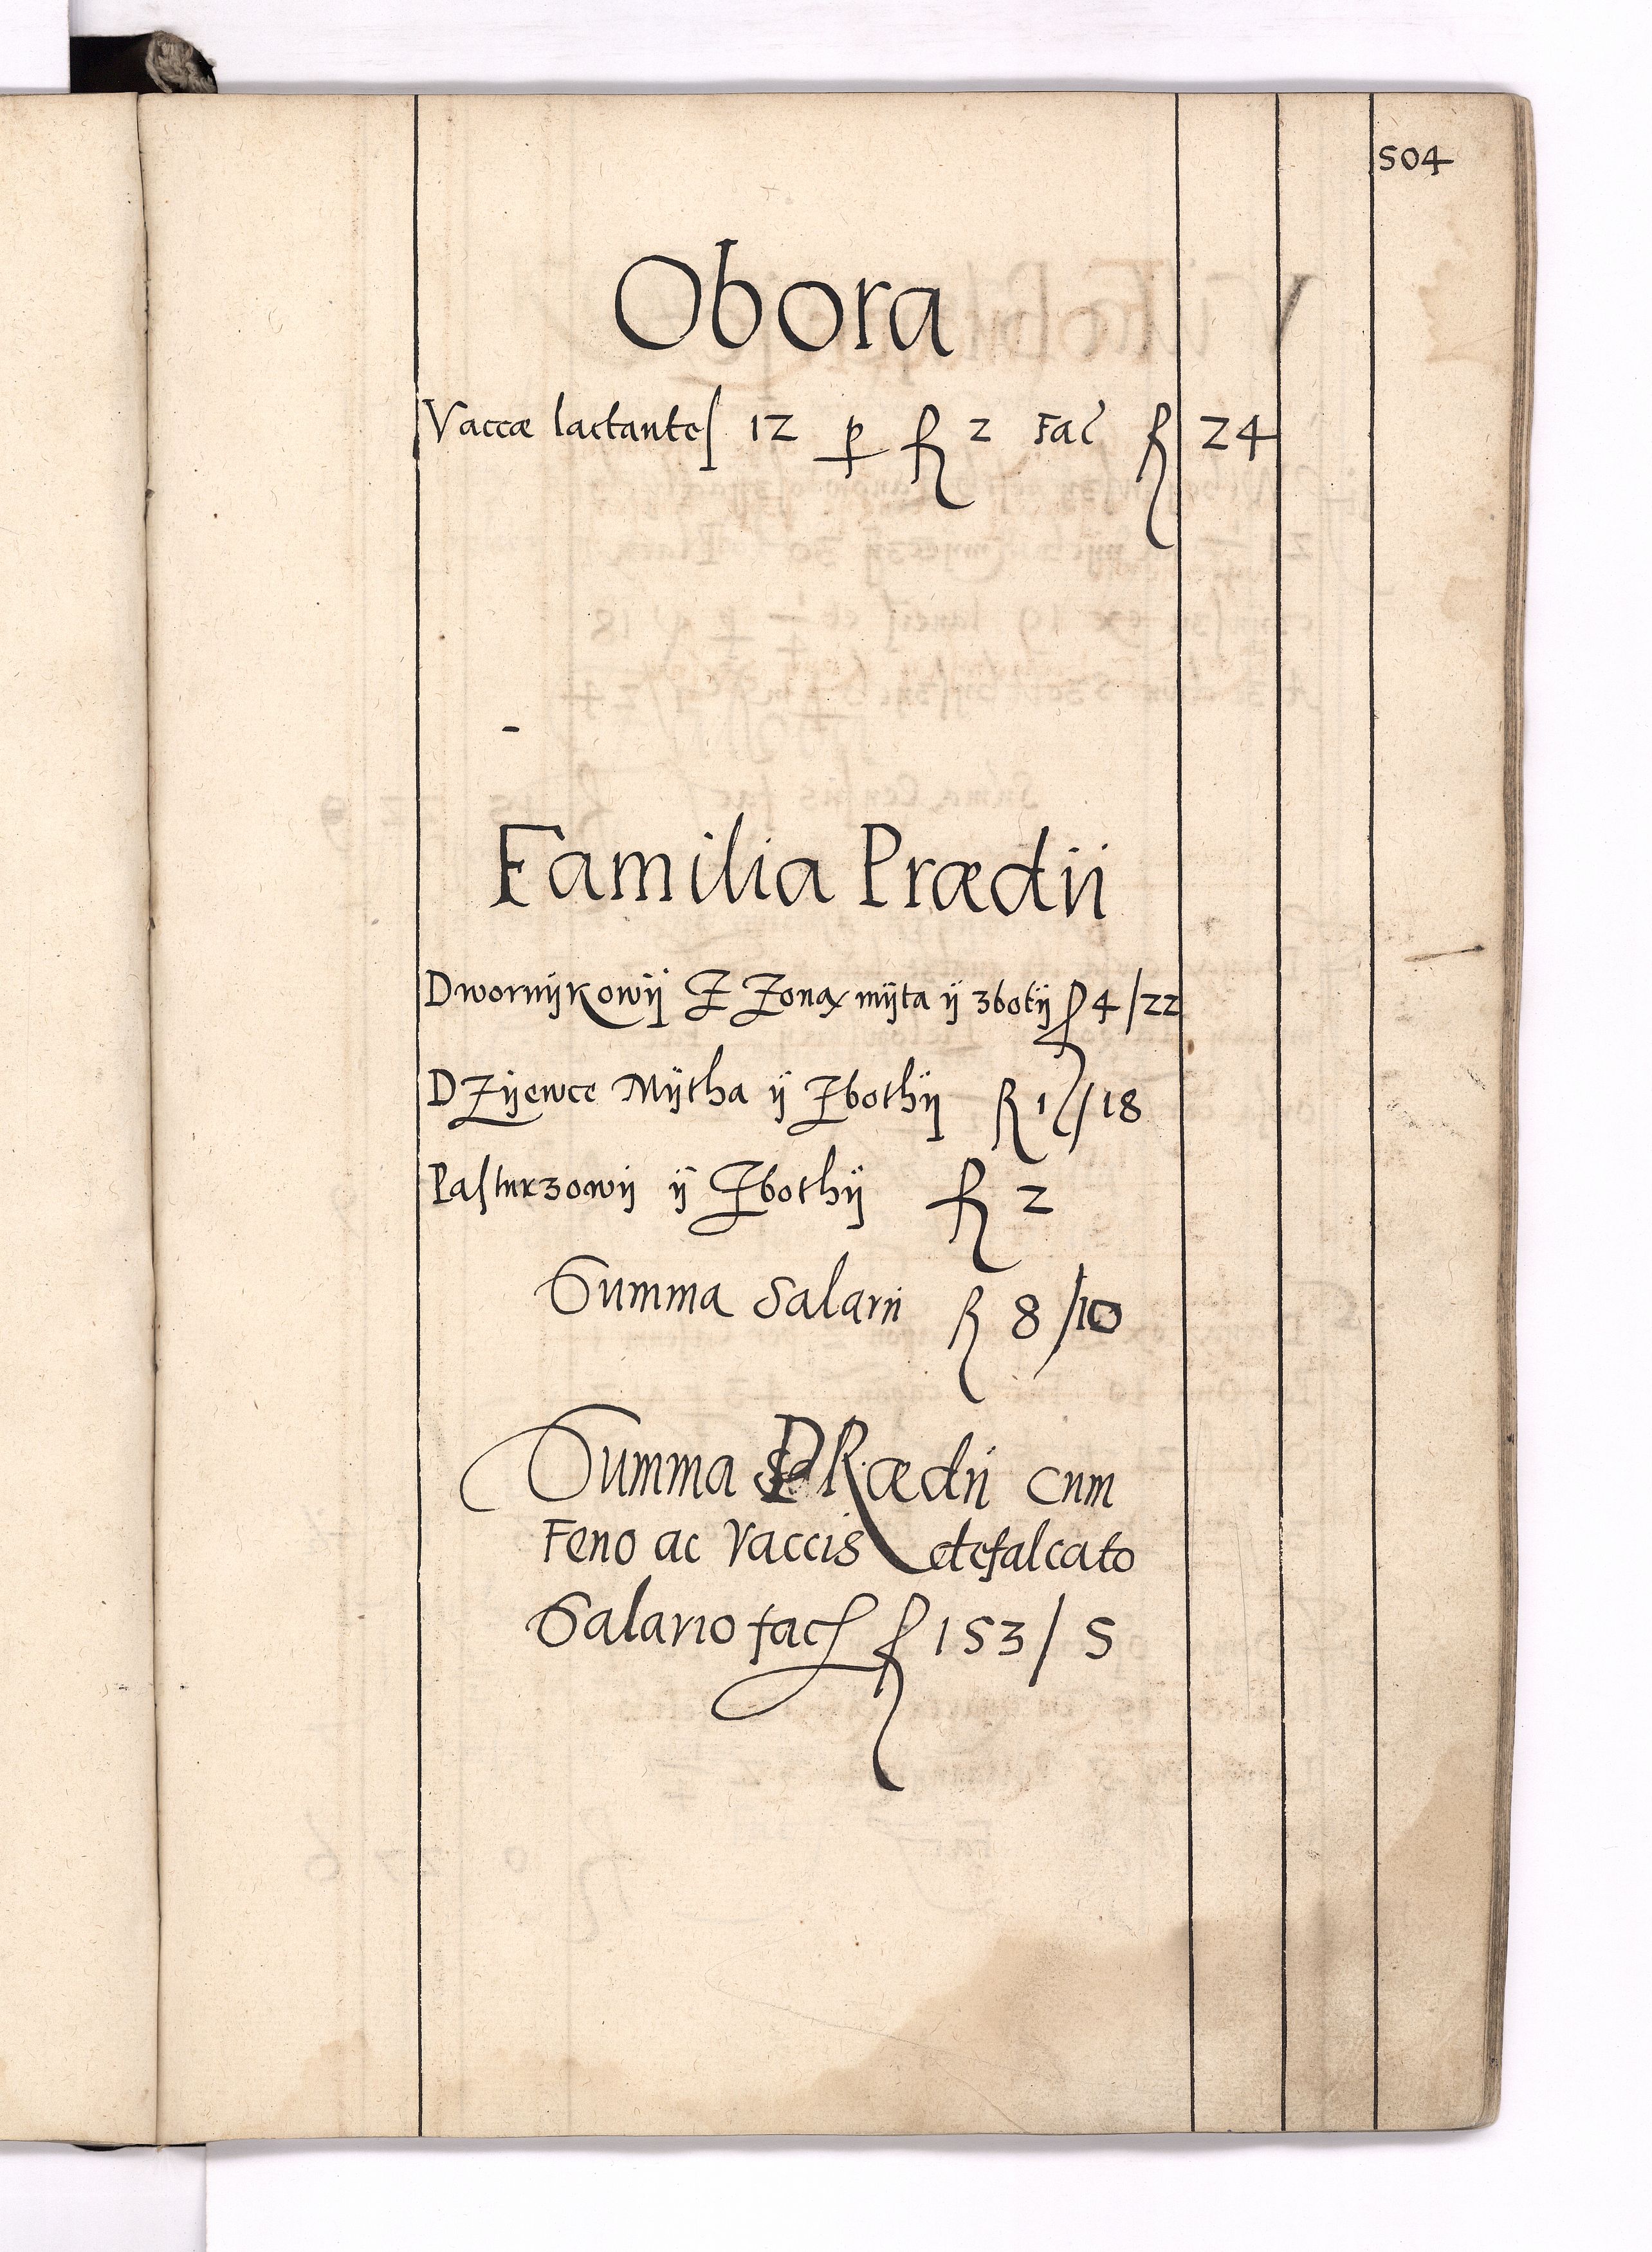 504
Obora
Vaccæ lactantes 12 p fl 2 Fac fl 24
Familia Prædii
Dwornÿkowÿ Z Zoną mÿta ÿ zbotÿ fl 4/22
DZÿewce Mÿtha ÿ Zbothÿ fl 1/18
Pasturzowÿ ÿ Zbothÿ fl 2
Summa Salarii fl 8/10
Summa PRædii cum
Feno ac Vaccis defalcato
Salario fac fl 153/5